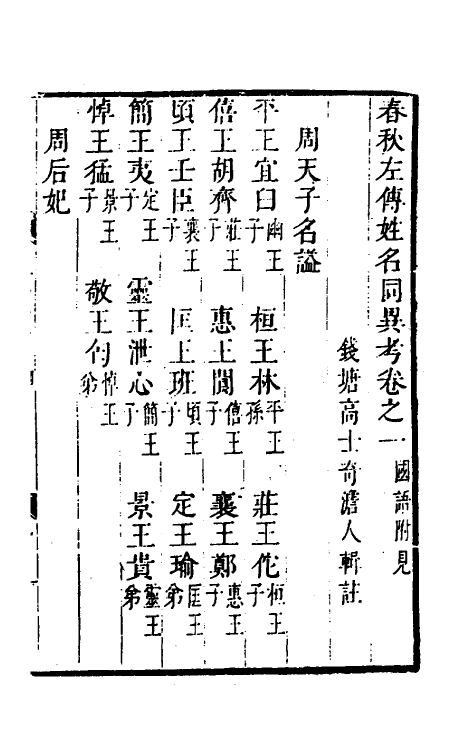 春秋左傳姓名同異考卷之一國語附見
錢塘高士奇澹人輯註
周天子名謚
平王宜臼幽王子 桓王林平王孫 莊王佗桓王子
僖王胡齊莊王子 惠王閬僖王子 襄王鄭惠王子
頃王壬臣襄王子 匡王班頃王子 定王瑜匡王弟
簡王夷定王子 靈王泄心簡王子 景王貴靈王弟
悼王猛景王子 敬王匄悼王弟
周后妃